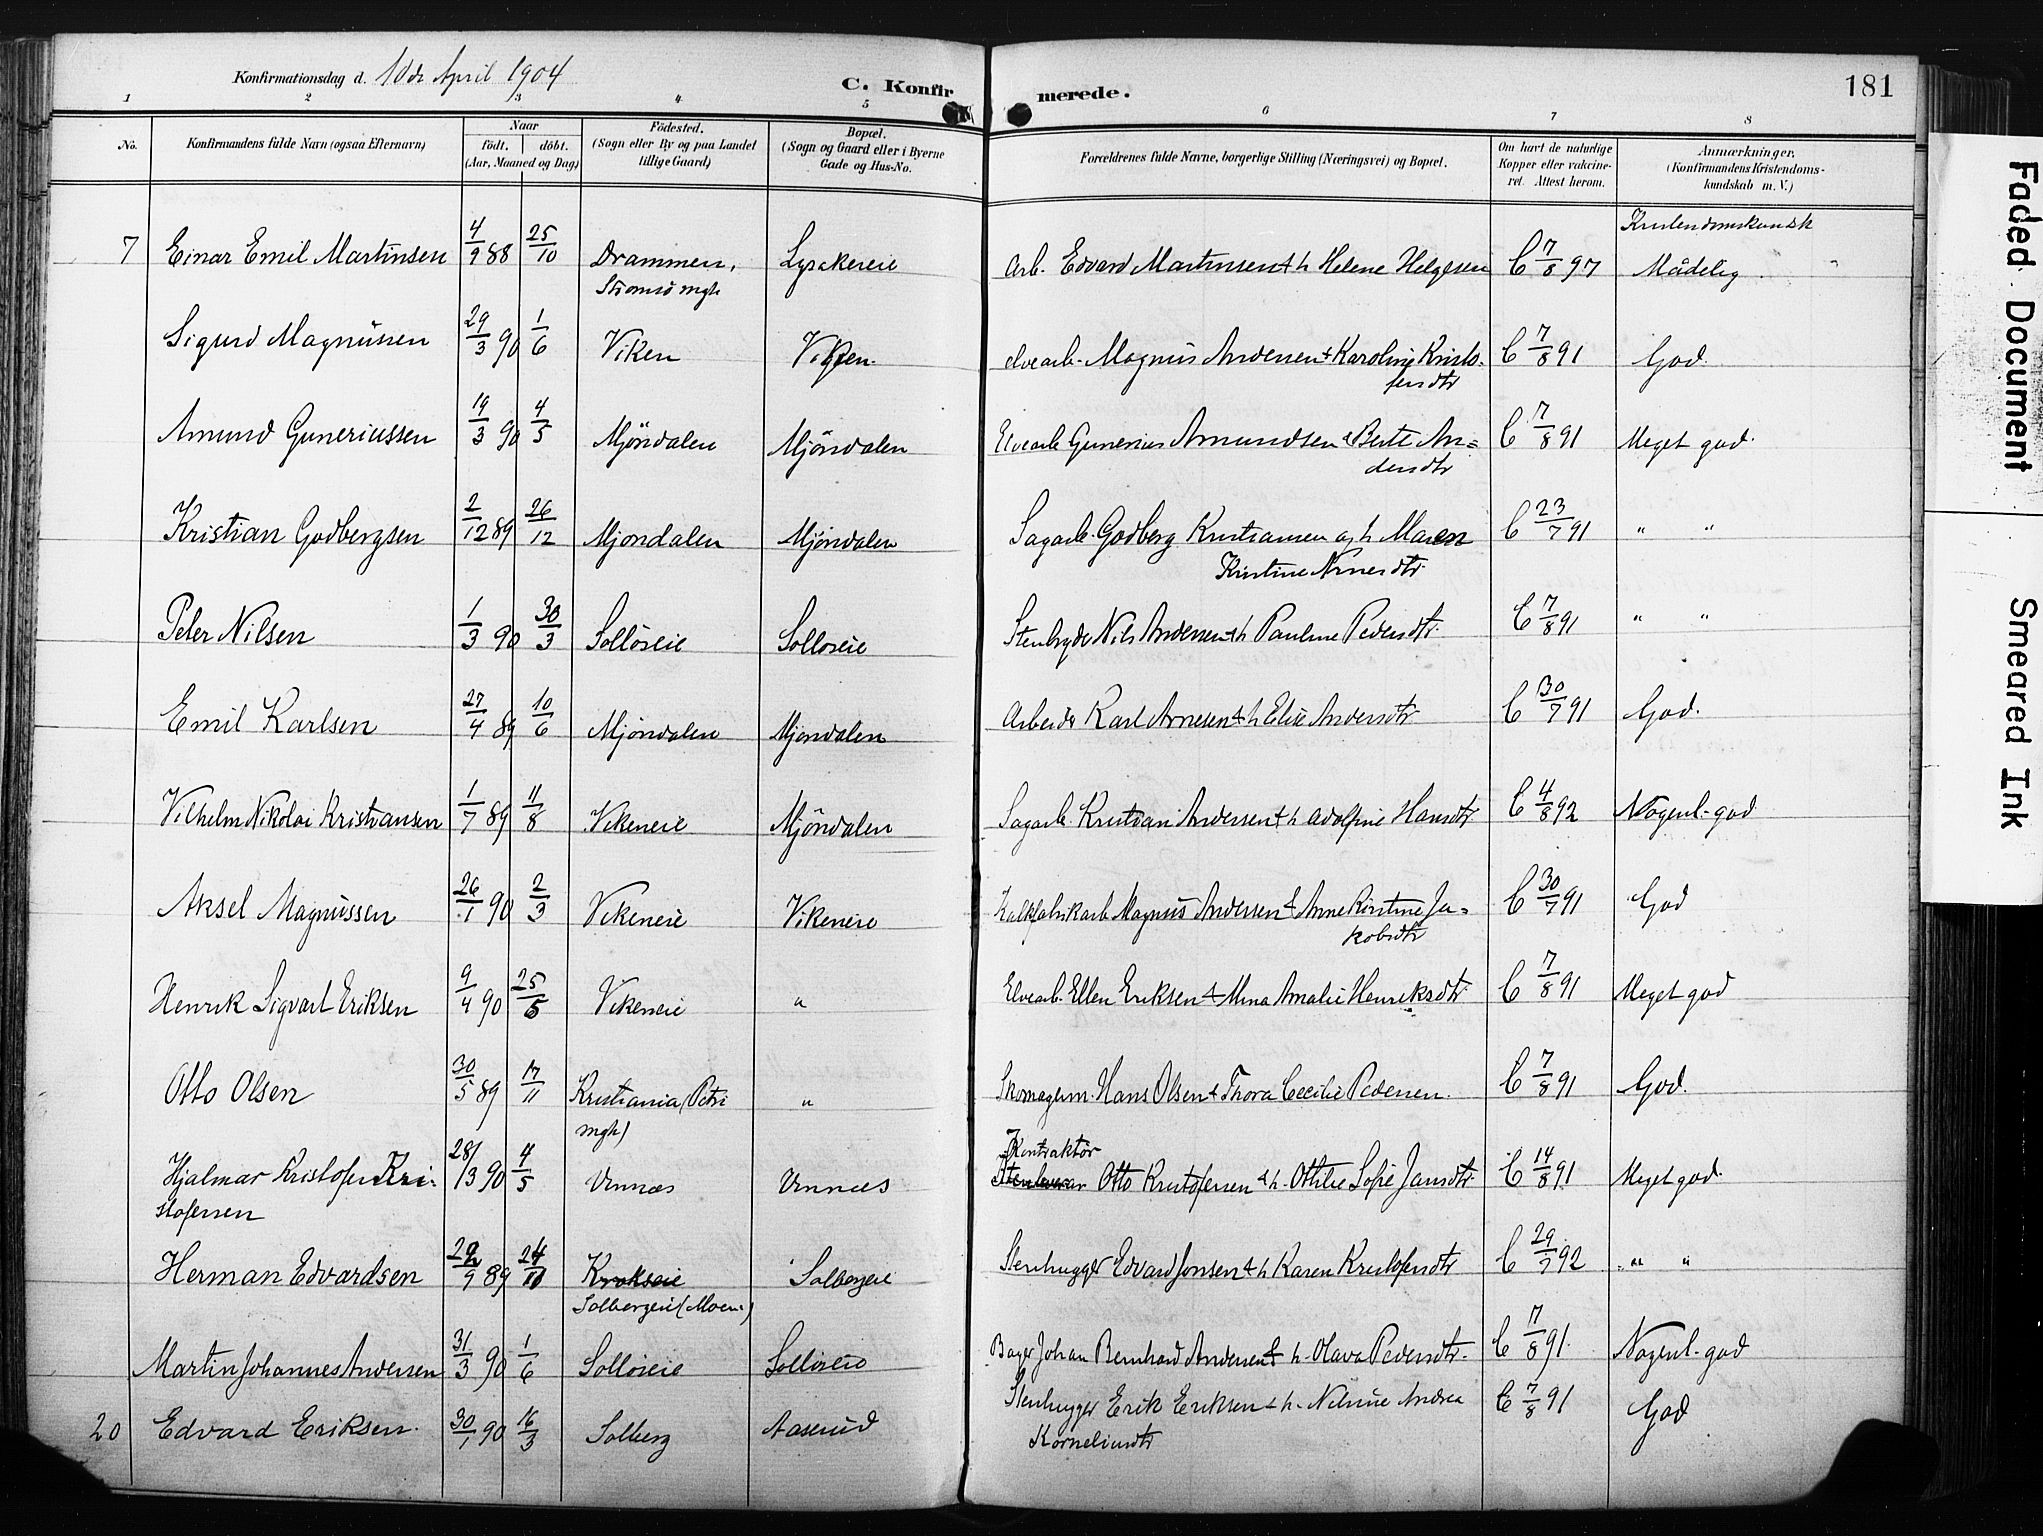 Konfirmationsdag d. 10de April 1904
C. Konfirmerede.
181
1 2 3 4 5 6 7 8
No. Konfirmandens fulde Navn (ogsaa Efternavn) Naar født. døbt. (Aar, Maaned og Dag) Födested. (Sogn eller By og paa Landet tillige Gaard) Bopæl. (Sogn og Gaard eller i Byerne Gade og Hus-No. Forældrenes fulde Navne, borgerlige Stilling (Næringsvei) og Bopæl. Om havt de naturlige Kopper eller vaccineret. Attest herom. Anmærkninger. (Konfirmandens Kristendomskundskab m. V.)
Kristendomskundsk
7 Einar Emil Martinsen 4/9 88 25/10 Drammen, Lysakereie Arb. Edvard Martinsen & h Helene Helgesen C 7/8 97 Mådelig
Strømsø mgh
Sigurd Magnussen 29/3 90 1/6 Viken Viken elvearb. Magnus Andersen & Karoline Kristo-
fersdtr C 7/8 91 God.
Amund Guneriussen 19/3 90 4/5 Mjöndalen Mjöndalen Elvearb Gunerius Amundsen & Berte An=
dersdtr C 7/8 91 Meget god.
Kristian Godbergsen 2/12 89 26/12 Mjöndalen Mjöndalen Sagarb. Godberg Kristiansen og h Maren
Kristine Arnesdtr. C 23/7 91 " "
Peter Nilsen 1/3 90 30/3 Solløseie Solløseie Stenbryder Nils Andersen & h Pauline Pedersdtr. C 7/8 91 " "
Emil Karlsen 27/4 89 10/6 Mjöndalen Mjöndalen Arbeider Karl Arnesen & h Elise Andersdtr C 30/7 91 God.
Vilhelm Nikolai Kristiansen 1/7 89 11/8 Vikeneie Mjöndalen Sagarb. Kristian Andersen & h Adolfine Hansdtr C 4/8 92 Nogenl. god
Aksel Magnussen 26/1 90 2/3 Vikeneie Vikeneie Kalkfabrikarb Magnus Andersen & Anne Kirstine Ja=
kobsdtr C 30/7 91 God
Henrik Sigvart Eriksen 9/4 90 25/5 Vikeneie " Elvearb. Ellen Eriksen & Mina Amalie Henriksdtr. C 7/8 91 Meget god
Otto Olsen 30/5 89 17/11 Kristiania (Petri " Skomagerm. Hans Olsen & Thora Cecilie Pedersen. C 7/8 91 God.
mgh)
Kontraktør
Hjalmar Kristofer Kri- 28/3 90 4/5 Vinnæs Vinnæs Otto Kristofersen & h. Othilie Sofie Jansdtr. C 14/8 91 Meget god.
stofersen
Herman Edvardsen 22/9 89 24/11 Krokseie Solbergeie Stenhugger Edvard Jonsen & h Karen Kristofersdtr C 29/7 92 " "
Solbergeie (Moen)
Martin Johannes Andersen 31/3 90 1/6 Solløseie Solløseie Bager Johan Bernhard Andersen & h. Olava Pedersdtr. C 7/8 91. Nogenl. god
20 Edvard Eriksen. 30/1 90 16/3 Solberg Aaserud Stenhugger Erik Eriksen & h. Nilsine Andrea
Korneliusdtr C 7/8 91 God
Faded Document
Smeared Ink